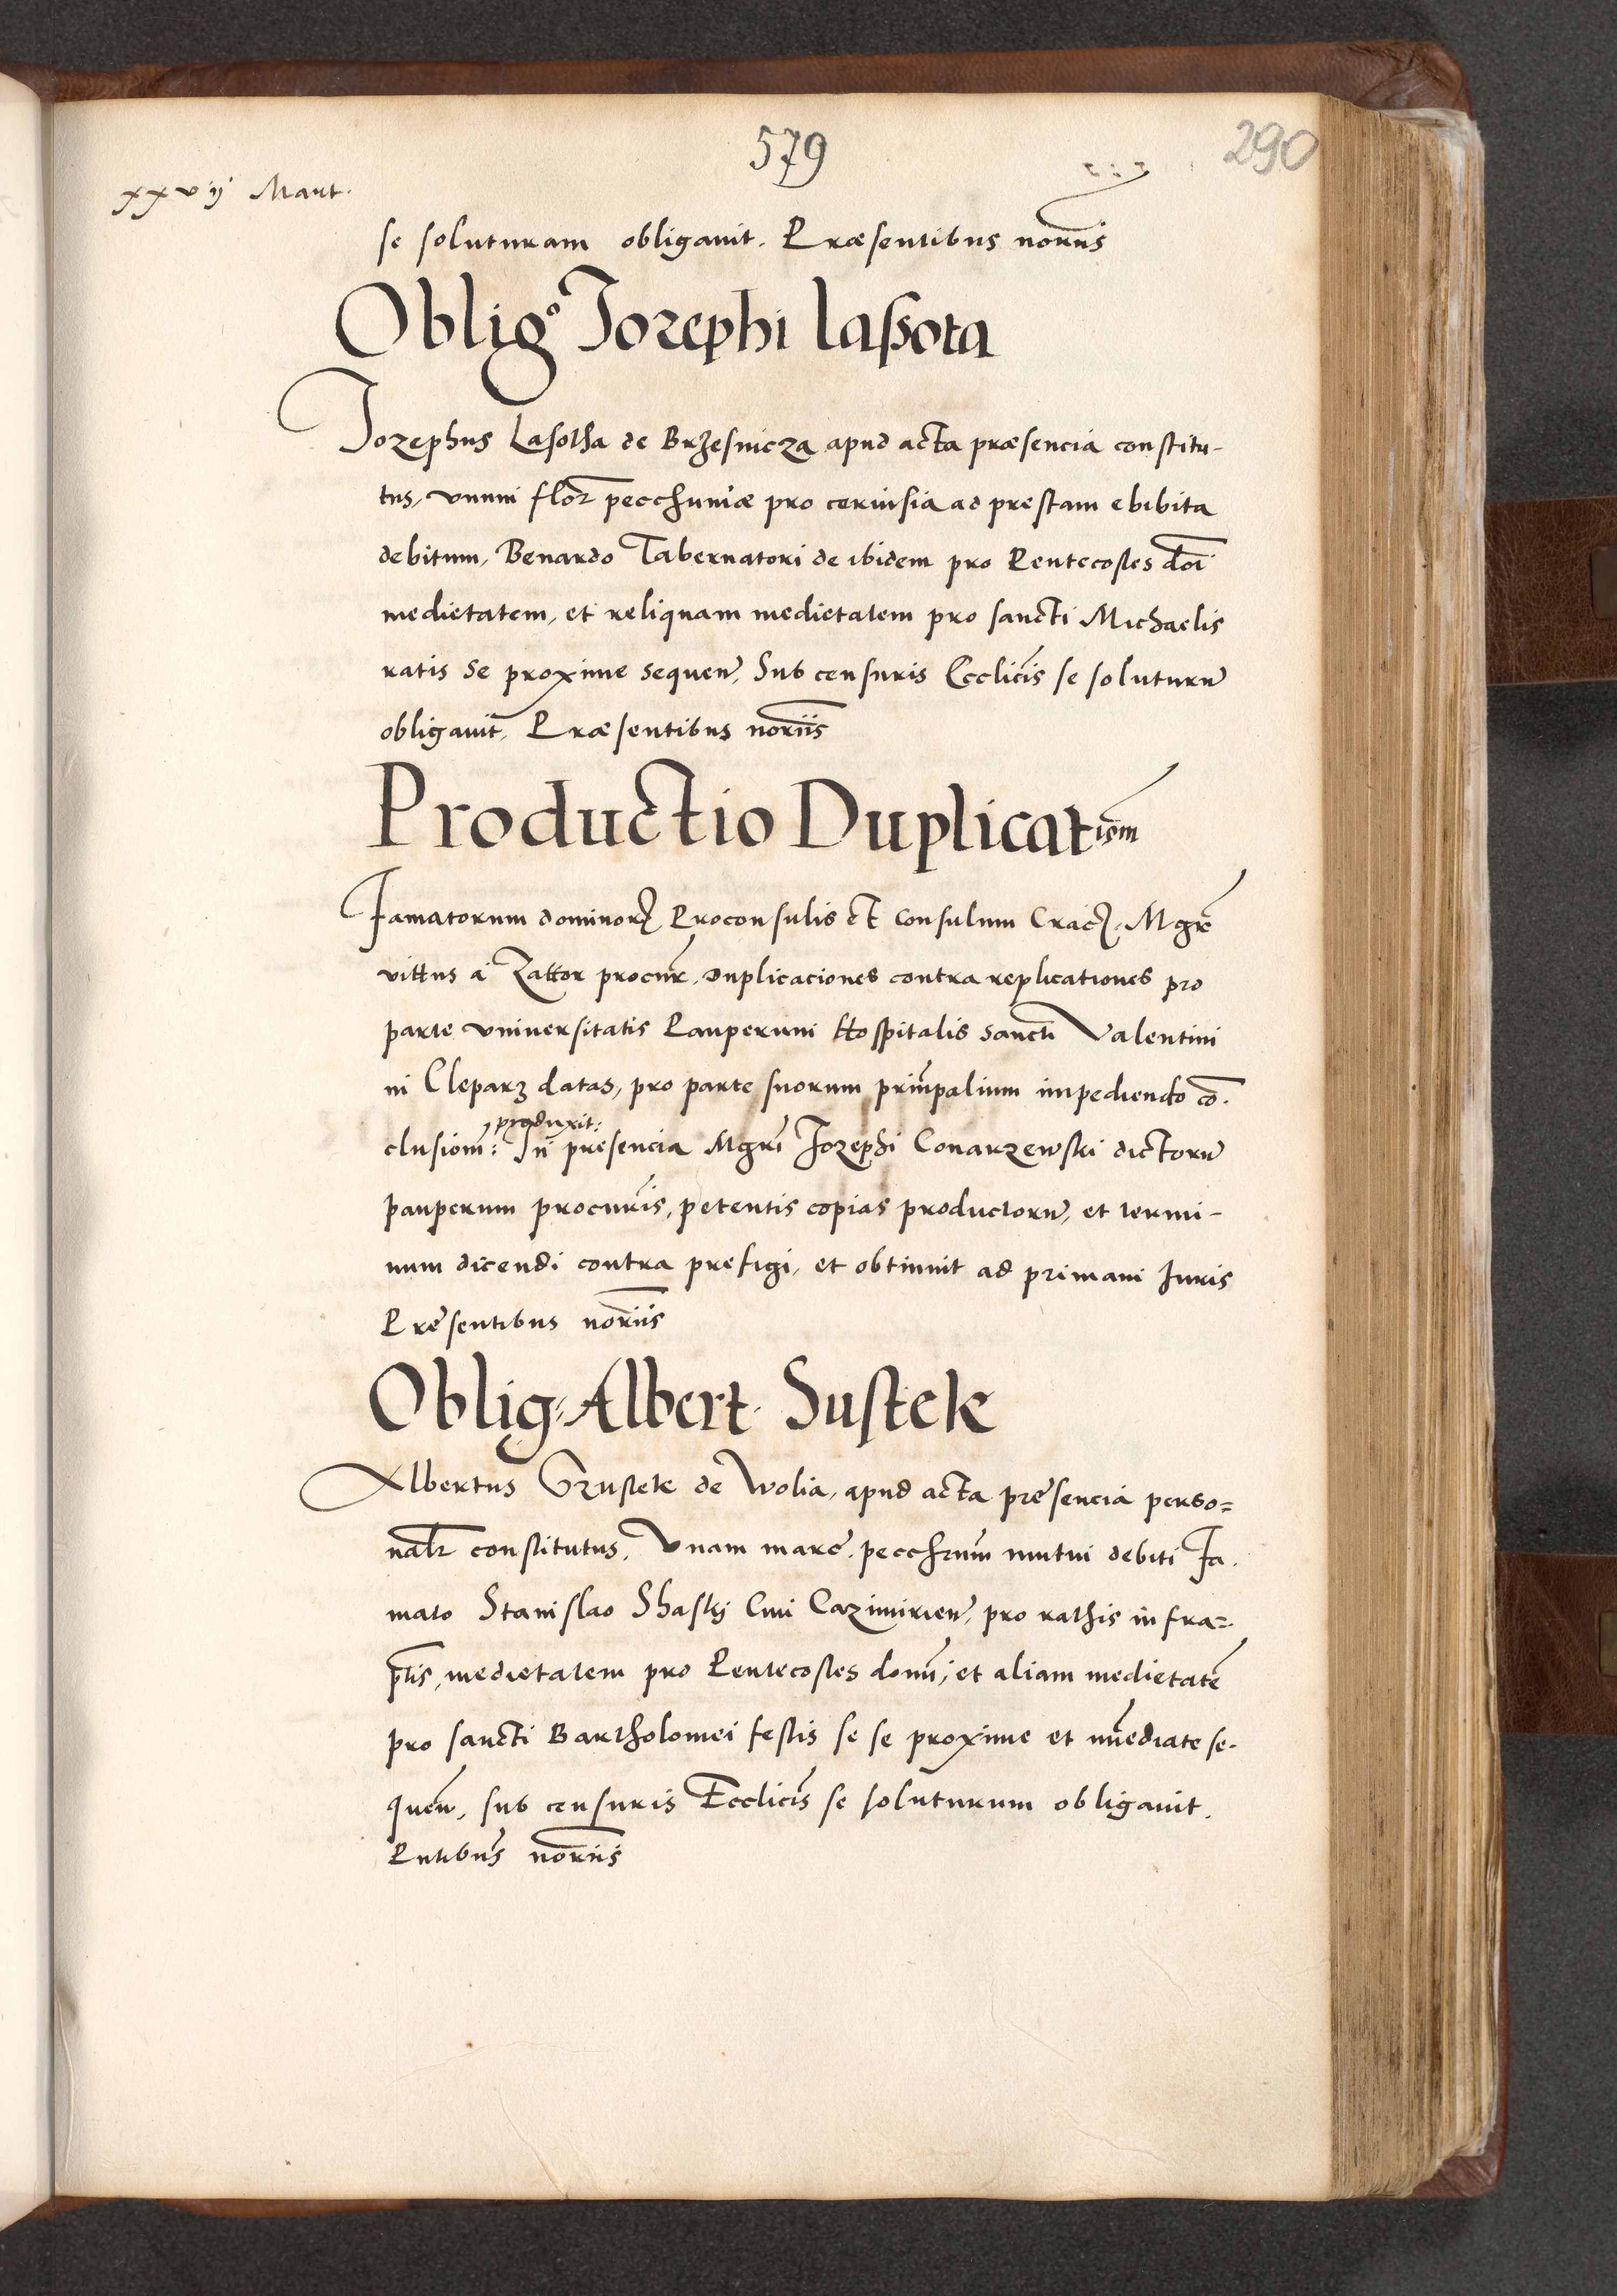 579
290
xxvij Mart.
se soluturam obligauit. Præsentibus norijs
Obligº Jozephi Laßota
Jozephus Lasotha de Brzesnicza apud acta præsencia constitu-
tus, vnum flor̃ pecchuniæ pro ceruisia ad prestam ebibita
debitum, Benardo Tabernatori de ibidem pro Pentecostes doī
medietatem, et reliquam medietatem pro sancti Michaelis
ratis se proxime sequeñ, Sub censuris Ecclicīs se soluturũ
obligauit, Præsentibus norijs
Productio Duplicatiom
Famatorum dominorꝝ Proconsulis et Consulum Cracꝝ. Mgr̃
vittus a Zattor procur̃. duplicaciones contra replicationes pro
parte vniuersitatis Pauperum Hospitalis sancti Valentini
in Cleparz datas, pro parte suorum prin̄palium impediendo cō.
produxit:
clusiom̃: In presencia Mgrī Jozephi Conarzewski dictorũ
pauperum procuris̃, petentis copias productorũ, et termi-
num dicendi contra prefigi, et obtinuit ad primam Juris
Pręsentibus norijs
Oblig: Albert. Sustek
Albertus Grzustek de Wolia, apud acta pręsencia perso=
nalr̃ constitutus. Vnam marc̃. pecchum̃ mutui debiti Fa.
mato Stanislao Shaskj Ciui Cazimirieñ, pro rathis infra=
p̃tis, medietatem pro Pentecostes domĩ, et aliam medietatẽ
pro sancti Bartholomei festis se se proxime et im̃ediate se-
queñ, sub censuris Ecclicīs se soluturum obligauit.
Pntibus̃ norijs